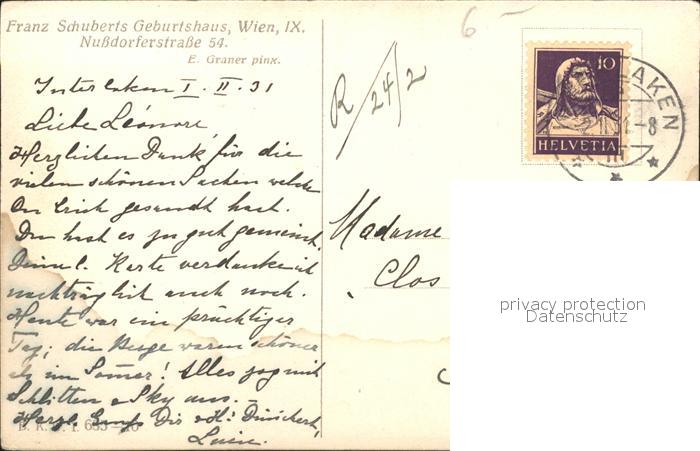 Franz Schuberts Geburtshaus, Wien, IX.
Nußdorferstraße 54.
E. Graner pinx.
Interlaken I. II. 31
Liebe Léonore,
Herzlichen Dank für die
vielen schönen Sachen welche
Du Erich gesandt hast.
Du hast es so gut gemeint.
Deine l. Karte verdanke ich
nachträglich auch noch.
Heute war ein prächtiger
Tag; die Berge waren schöner
als im Somer! Alles zog mit
Schlitten & Sky aus.
Herzl. Gruss Dir
B. K. I. 685-10
6 –
R 24/2
10
HELVETIA
LAKEN
-8
Madame
Clos
privacy protection
Datenschutz